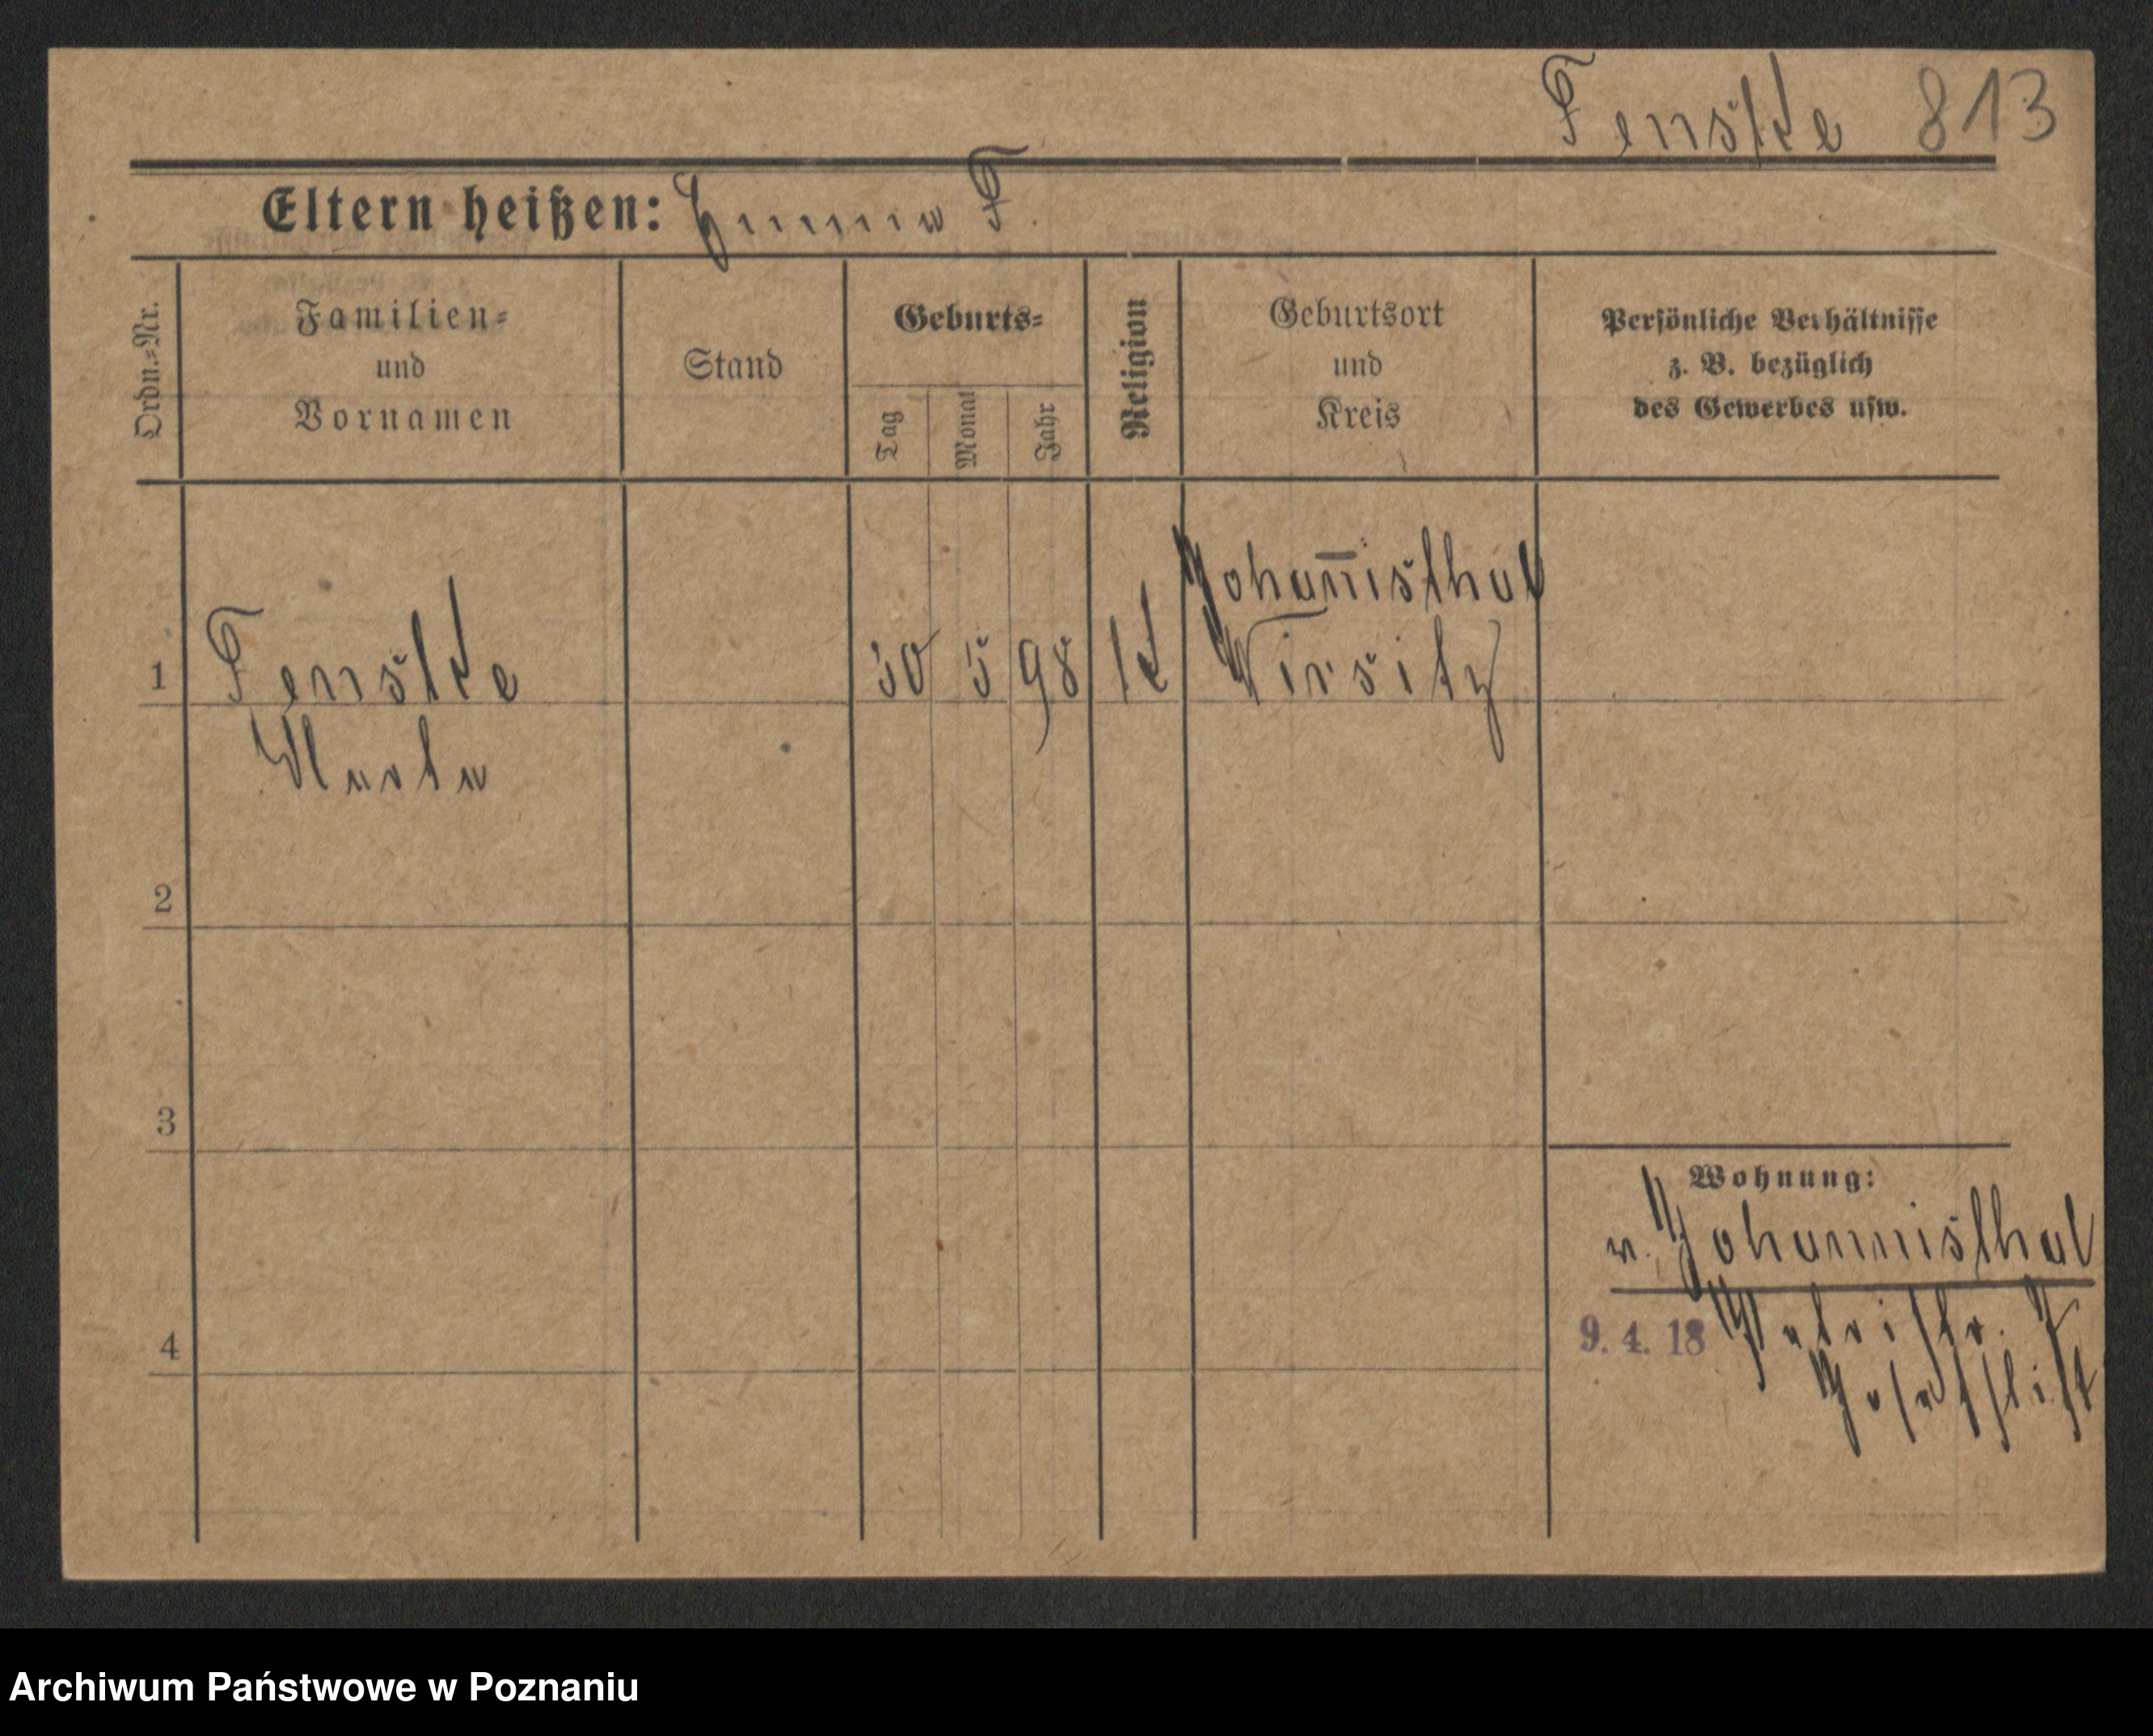 Fenske 813
Eltern heißen: Emma F.
Ordn.=Nr.
Familien=
und
Vornamen
Stand
Geburts=
Tag
Monat
Jahr
Religion
Geburtsort
und
Kreis
Persönliche Verhältnisse
z. B. bezüglich
des Gewerbes usw.
Johannisthal
1 Fenske 30 5 98 k Wirsitz
Marta
2
3
Wohnung:
v. Johannisthal
9. 4. 18 Petristr. 7
Josefstift
4
Archiwum Państwowe w Poznaniu